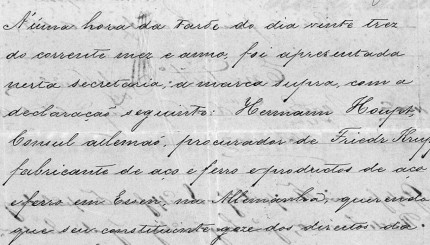 N'uma hora da tarde do dia vinte trez
do corrente mez e anno, foi apresentada
nesta secretaria, a marca supra, com a
declaração seguinte: Hermann Haupt,
Consul allemaõ, procurador de Friedr Krup
fabricante de aço e ferro e productos de aço
e ferro em Essen, na Allemanha, querendo
que seu constituante goze dos direitos da